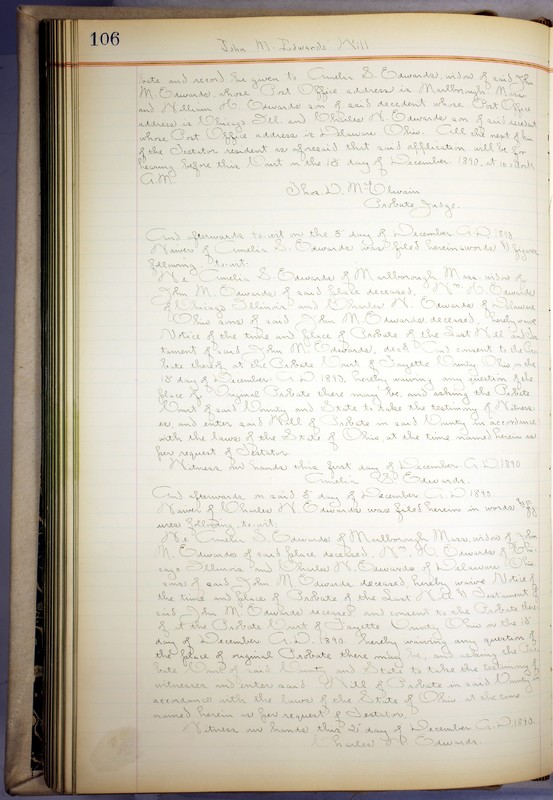 106
John M. Edwards' Will
bate and record be given to Amelia S. Edwards, widow of said John
M. Edwards, whose Post Office address is Marlborough Mass
and William H. Edwards son of said decedent whose Post Office
address is Chicago Ill. and Charles N. Edwards son of said decedent
whose Post Office address is Delaware Ohio. All the next of kin
of the Testator resident as aforesaid that said application will be for
hearing before this Court on the 18 day of December 1890, at 10 o'clock
A.M.
Thos. D. McElwain
Probate Judge.
And afterwards to-wit on the 5 day of December A.D. 1890
Waiver of Amelia S. Edwards was filed herein words & figures
following to-wit:
We Amelia S. Edwards of Marlborough Mass. widow of
John M. Edwards of said place deceased, Wm. H. Edwards
of Chicago Illinois and Charles N. Edwards of Delaware
Ohio sons of said John M. Edwards deceased, hereby waive
Notice of the time and place of Probate of the Last Will and Tes
tament of said John M. Edwards, decd and consent to the Pro
bate thereof, at the Probate Court of Fayette County, Ohio on the
18 day of December A.D. 1890, hereby waiving any question of the
place of Original Probate there may be, and asking the Probate
Court of said County and State to take the testimony of Witness
es, and enter said Will of Probate in said County in accordance
with the laws of the State of Ohio, at the time named herein as
per request of Testator.
Witness our hands this first day of December A.D. 1890
Amelia S. Edwards.
And afterwards on said 5 day of December A.D. 1890.
Waiver of Charles N. Edwards was filed herein in words & fig
ures following, to-wit:
We Amelia S. Edwards of Marlborough Mass. widow of John
M. Edwards of said place deceased, Wm. H. Edwards of Chi-
cago Illinois and Charles N. Edwards of Delaware Ohio
sons of said John M. Edwards deceased hereby waive Notice of
the time and place of Probate of the Last Will & Testament of
said John M. Edwards deceased and consent to the Probate there
of, at the Probate Court of Fayette County Ohio on the 18
day of December A.D. 1890. hereby waiving any question of
the place of original Probate there may be, and asking the Pro
bate Court of said County and State to take the testimony of
witnesses and enter said Will of Probate in said County in
accordance with the laws of the State of Ohio at the time
named herein as per request of Testator.
Witness our hands this 2 day of December A.D. 1890.
Charles N. Edwards.